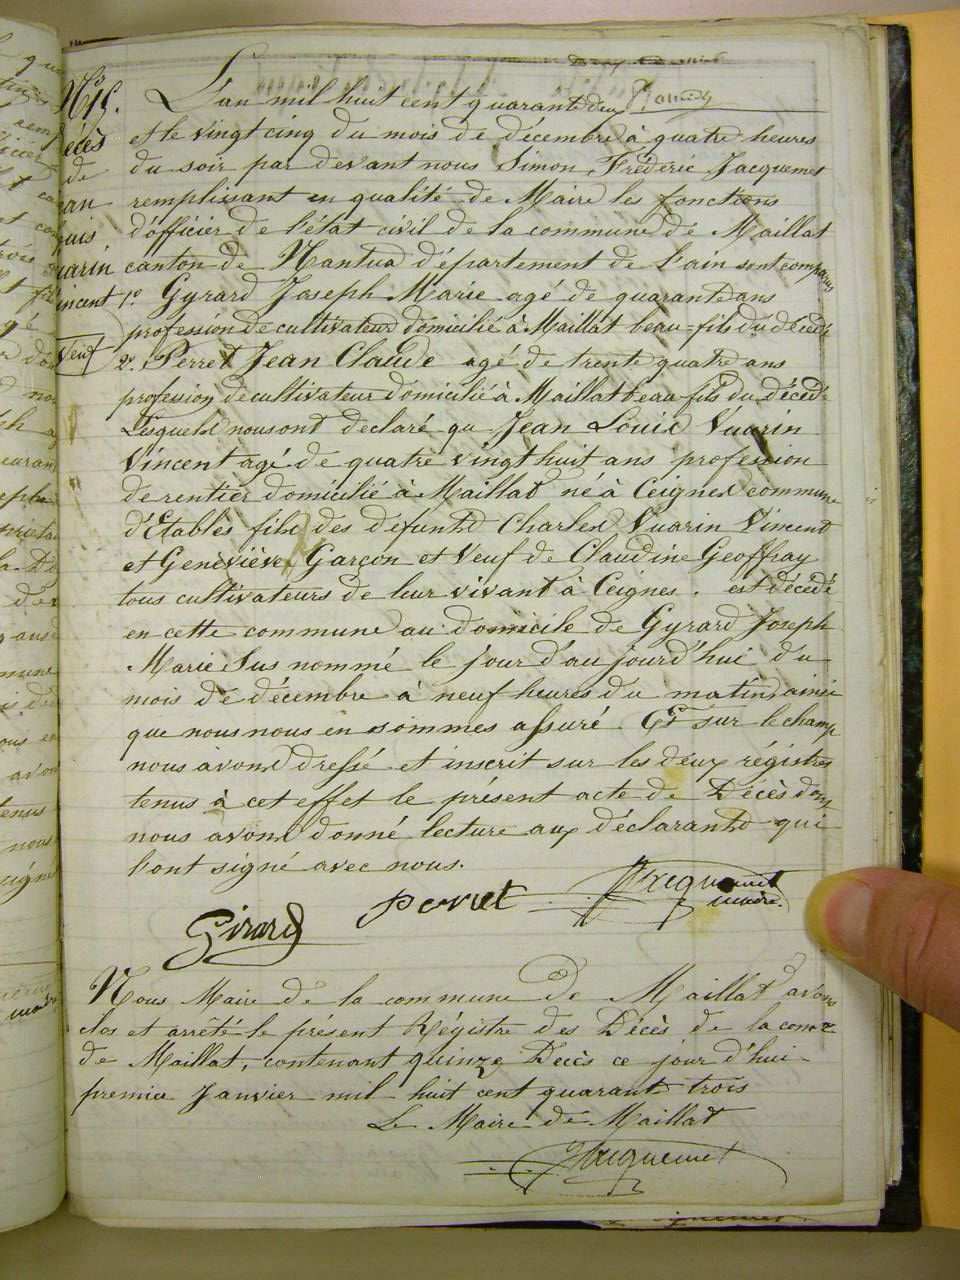 N° 15.
décès
de
Jean
Louis
Vuarin
Vincent
Veuf
L'an mil huit cent quarante deux
et le vingt cinq du mois de décembre à quatre heures
du soir par devant nous Simon, Fréderic Jacquemet
remplissant en qualité de Maire les fonctions
d'officier de l'état civil de la commune de Maillat
canton de Nantua département de l'ain sont comparus
1° Gyrard Joseph Marie agé de quarante ans
profession de cultivateur domicilié à Maillat beau-fils du décédé
2° Perret Jean Claude agé de trente quatre ans
profession de cultivateur domicilié à Maillat beau-fils du décédé
Lesquels nous ont declaré qu Jean Louis Vuarin
Vincent agé de quatre vingt huit ans profession
de rentier domicilié à Maillat né à Ceignes commune
d'Etables fils des défunts Charles Vuarin Vincent
et Geneviève Garçon et Veuf de Claudine Geoffray
tous cultivateurs de leur vivant à Ceignes. est décédé
en cette commune au domicile de Gyrard Joseph
Marie sus nommé le jour d'aujourd'hui du
mois de décembre à neuf heures du matin, ainsi
que nous nous en sommes assuré. Et sur le champ
nous avons dressé et inscrit sur les deux régistres
tenus à cet effet le présent acte de Décès dont
nous avons donné lecture aux déclarants qui
l'ont signé avec nous.
Girard Perret Jacquemet
maire.
Nous Maire de la commune de Maillat avons
clos et arrêté le présent Régistre des Décès de la come
de Maillat, contenant quinze Décès ce jour d'hui
premier Janvier mil huit cent quarante trois
Le Maire de Maillat
Jacquemet